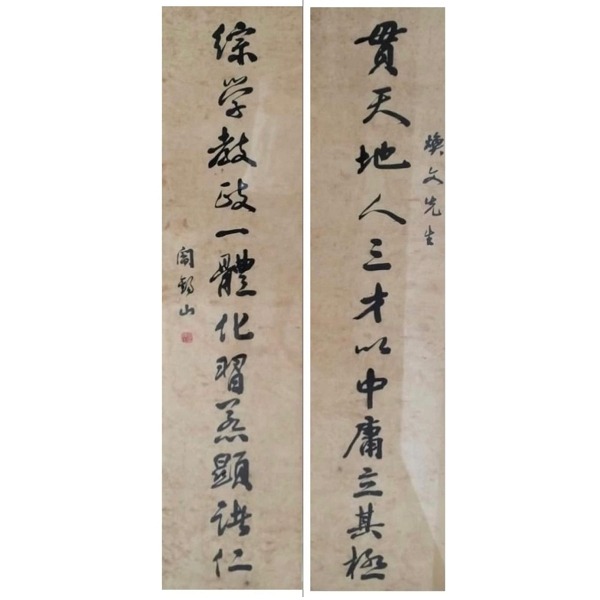 煥文先生
貫天地人三才以中庸立其極
綜学教政一體化習顯諸仁
閻錫山